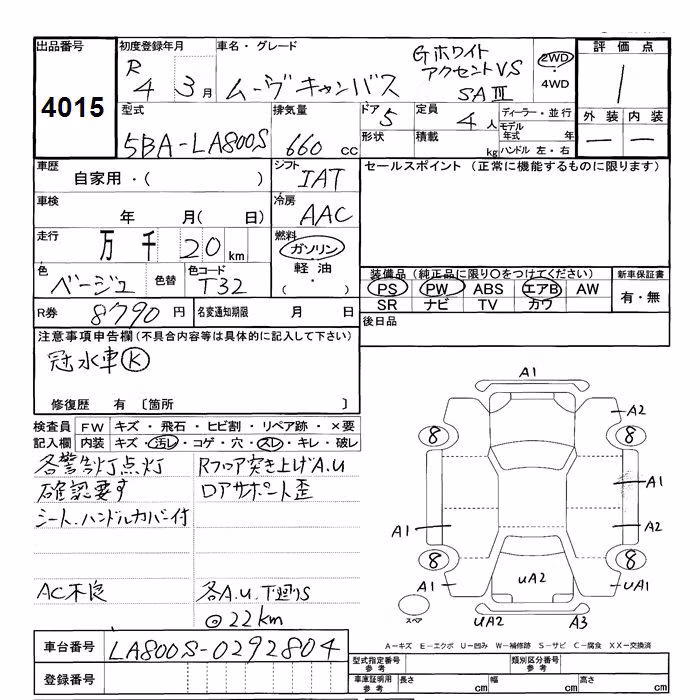 出品番号
4015
初度登録年月
R 4 3月
車名・グレード
ムーヴキャンバス
Gホワイト
アクセントVS
SAⅢ
2WD
・
4WD
評価点
1
外装 内装
ー ー
型式
5BA-LA800S
排気量
660 cc
ドア
5
定員
4人
ディーラー・並行
形状
積載
kg
モデル年式 年
ハンドル 左・右
車歴
自家用・( )
シフト
IAT
セールスポイント (正常に機能するものに限ります)
車検
年 月( 日)
冷房
AAC
走行
万千20km
燃料
ガソリン
軽油・
( )
色
ベージュ
色替
色コード
T32
装備品(純正品に限り○をつけてください)
PS PW ABS エアB AW
SR ナビ TV カワ
新車保証書
有・無
R券 8790円
名変通知期限 月 日
後日品
注意事項申告欄(不具合内容等は具体的に記入して下さい)
冠水車Ⓚ
修復歴 有 〔箇所 〕
検査員記入欄
FW キズ・飛石・ヒビ割・リペア跡・×要
内装 キズ・汚レ・コゲ・穴・スレ・キレ・破レ
各警告灯点灯
確認要す
シート、ハンドルカバー付
AC不良
Rフロア突き上げA.U
ロアサポート歪
各A.U.T廻りS
@22km
A1
A2
8
8
A1
A1
A2
8
8
A1
UA2
UA1
スペア
UA2
A3
A-キズ E-エクボ U-凹み W-補修跡 S-サビ C-腐食 XX-交換済
車台番号 LA800S-0292804
登録番号
型式指定番号 参考
類別区分番号 参考
車庫証明用 参考
長さ cm 幅 cm 高さ cm